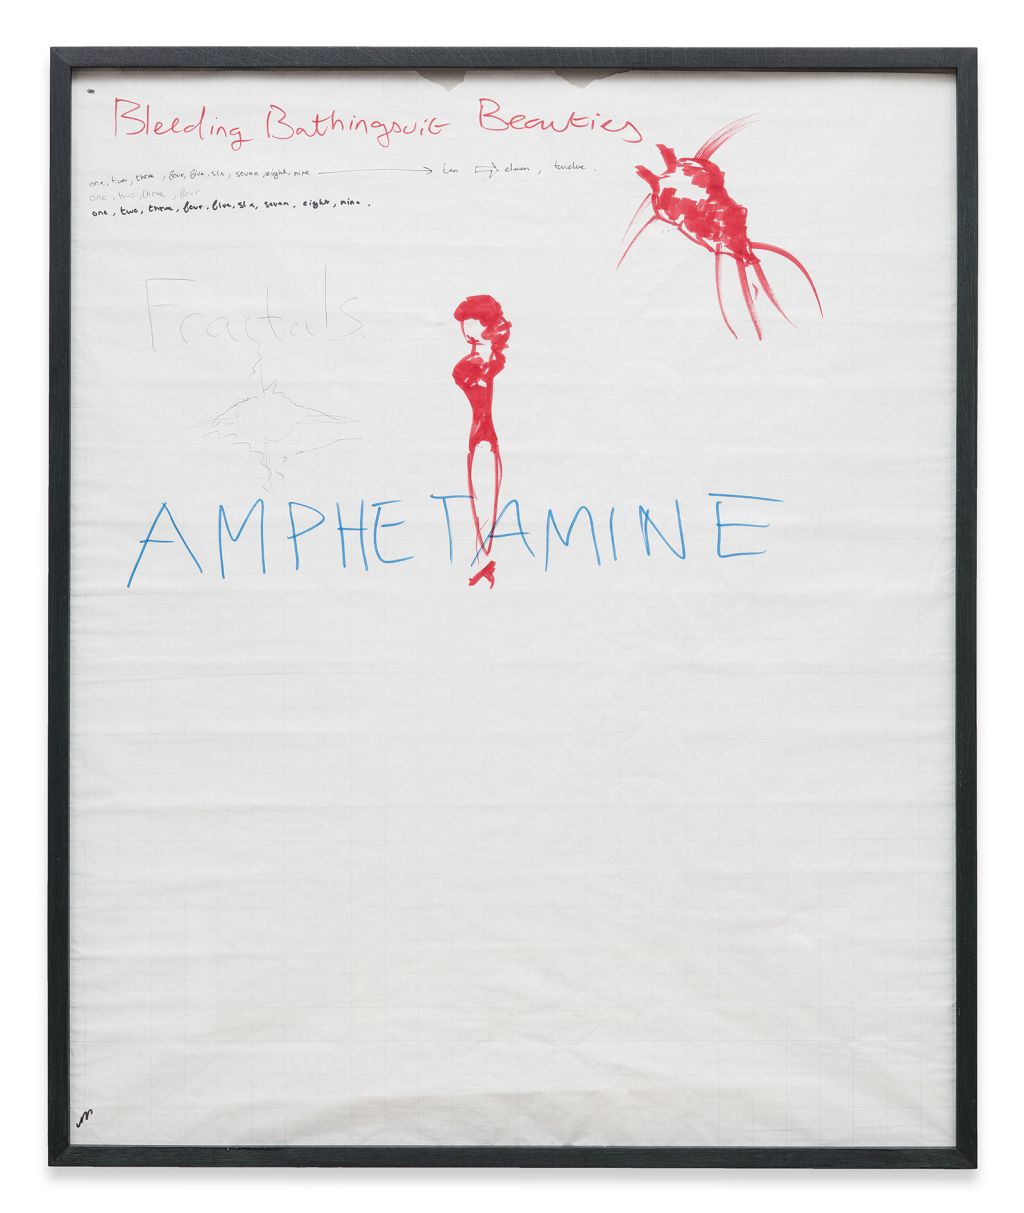 Bleeding Bathingsuit Beauties
one, two, three, four, five, six, seven, eight, nine ten eleven, twelve.
one, two, three, four
one, two, three, four, five, six, seven, eight, nine.
Fractals.
AMPHETAMINE